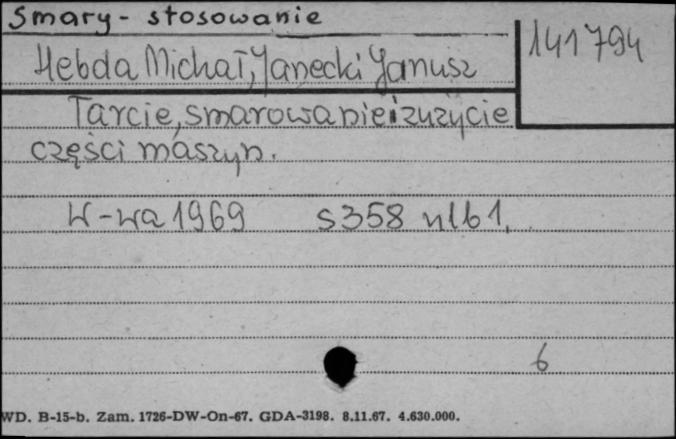 Smary - stosowanie
Hebda Michał, Janecki Janusz
141794
Tarcie, smarowanie i zużycie
części maszyn.
W-wa 1969 s 358 nlb 1.
6
WD. B-15-b. Zam. 1726-DW-On-67. GDA-3198. 8.11.67. 4.630.000.